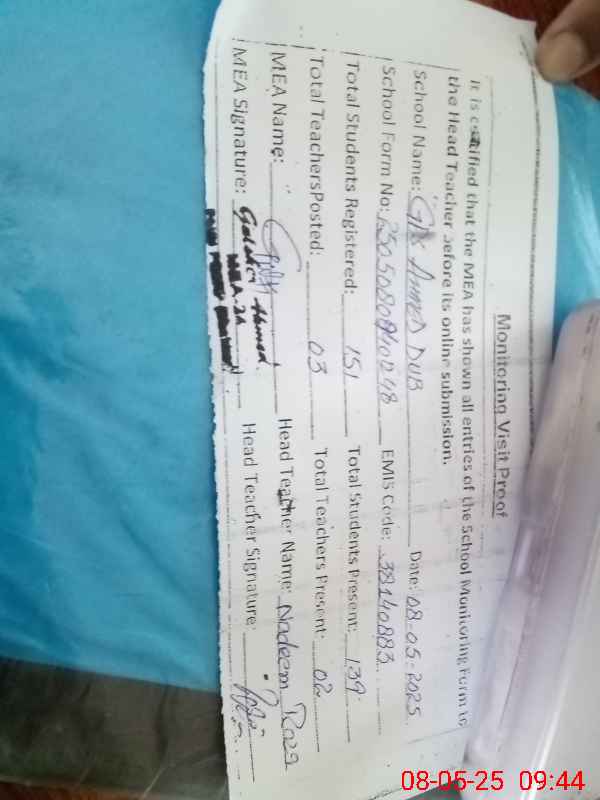 Monitoring Visit Proof
It is certified that the MEA has shown all entries of the School Monitoring Form to
the Head Teacher before its online submission.
School Name: GPS AHMED DUB Date: 08-05-2025
School Form No: EMIS Code: 38140883
Total Students Registered: 151 Total Students Present: 139
Total TeachersPosted: 03 Total Teachers Present: 02
MEA Name: Head Teacher Name: Nadeem Raza
MEA Signature: Head Teacher Signature:
08-05-25 09:44